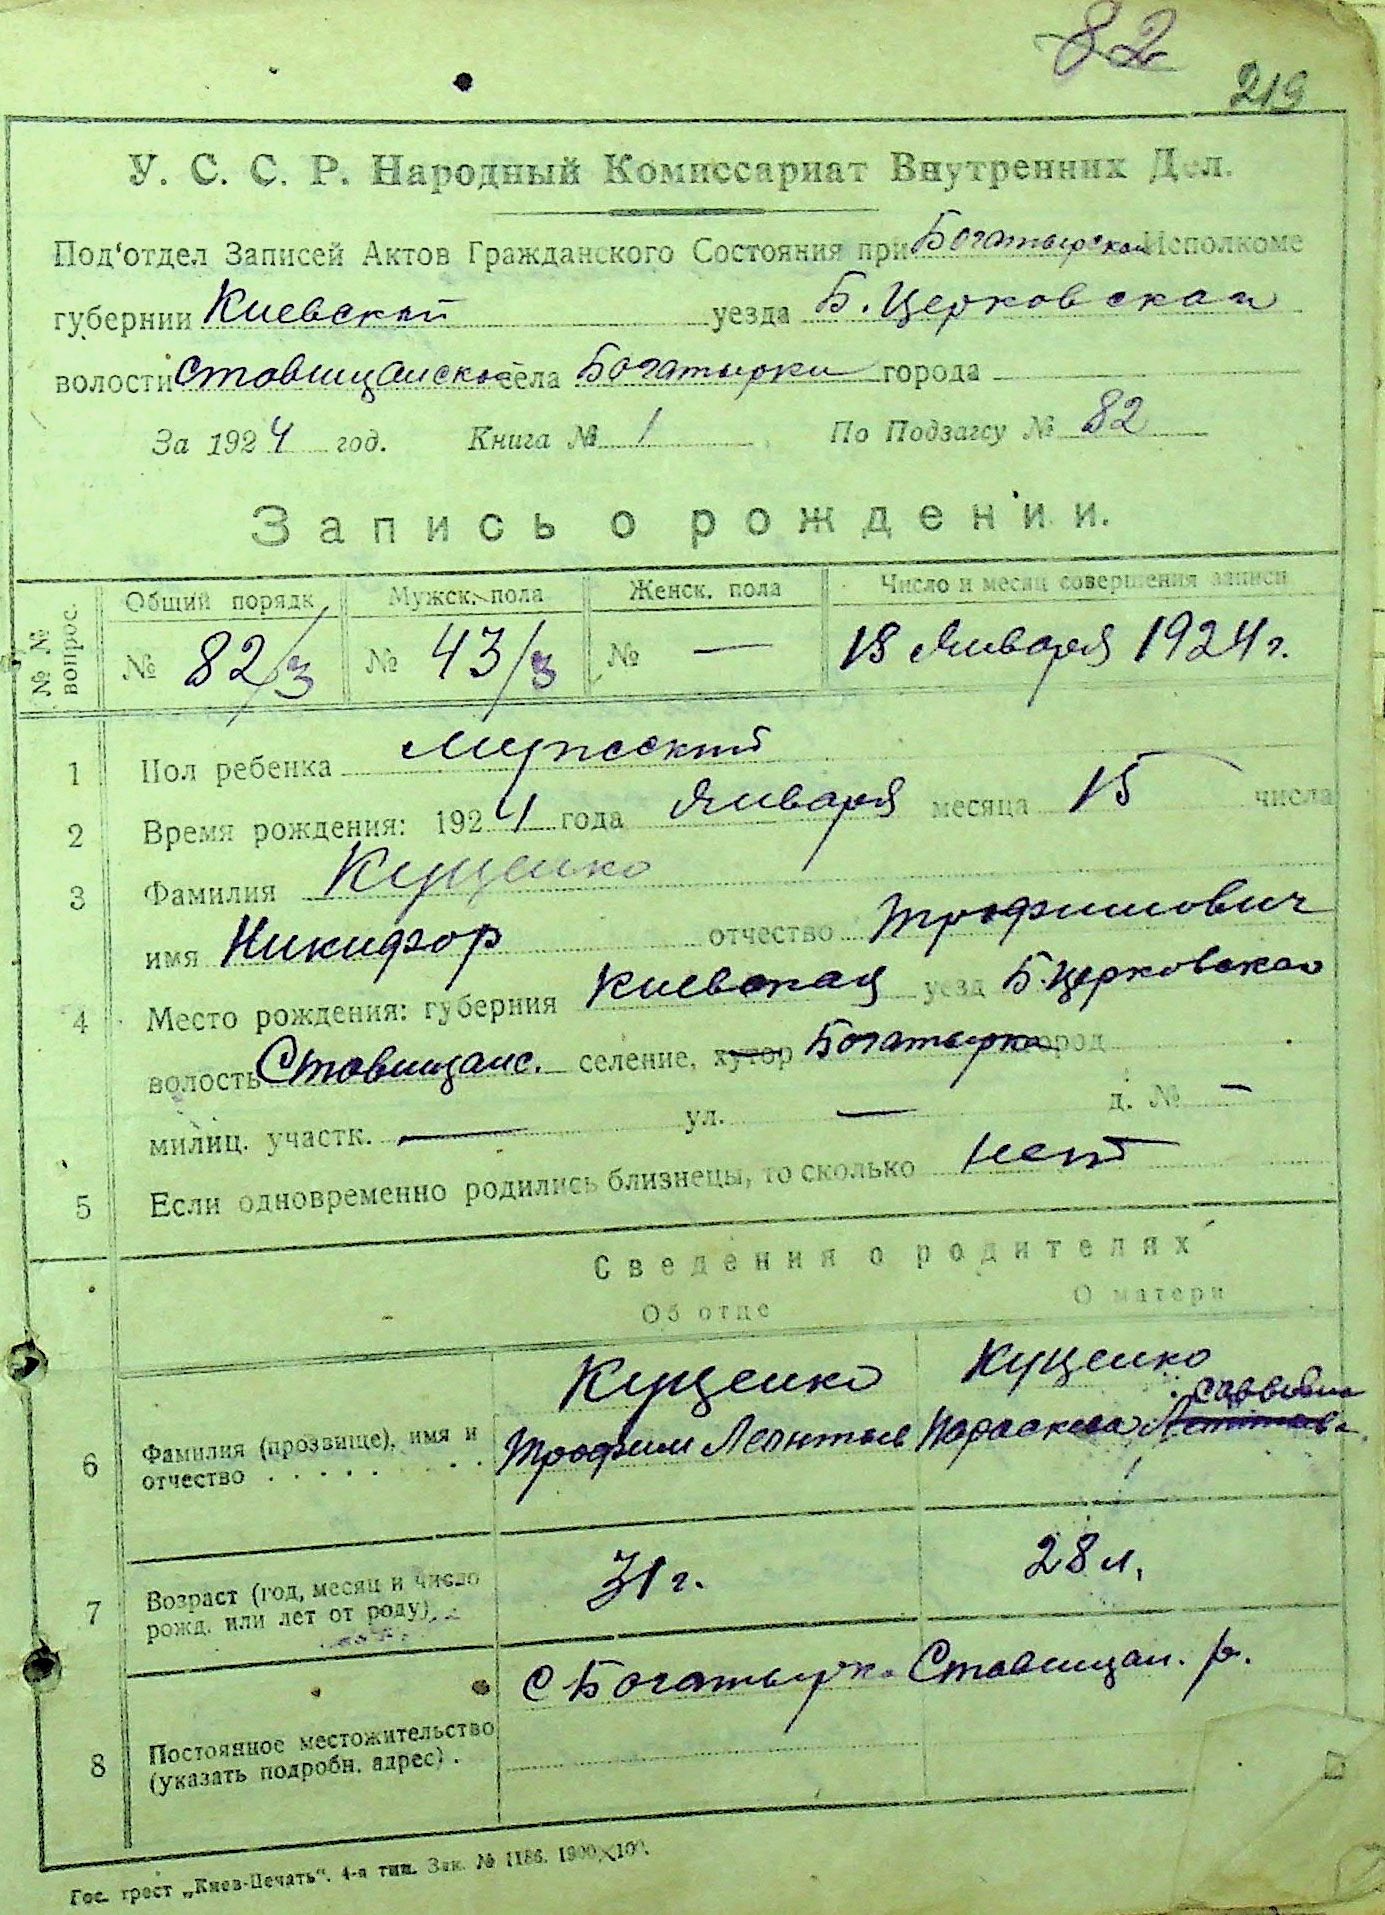 82
219
У. С. С. Р. Народный Комиссариат Внутренних Дел.
Под‘отдел Записей Актов Гражданского Состояния при Богатырском Исполкоме
губернии Киевской уезда Б. Церковская
волости Ставищанской села Богатырки города
За 1924 год. Книга № 1 По Подзагсу № 82
Запись о рождении.
№ № вопрос.
Общий порядк. Мужск. пола Женск. пола Число и месяц совершения записи
№ 82/3 № 43/3 № — 18 Января 1924 г.
1 Пол ребенка Мужеский
2 Время рождения: 1924 года Января месяца 15 числа
3 Фамилия Куценко
имя Никифор отчество Трофимович
4 Место рождения: губерния Киевская уезд Б. Церковская
волость Ставищанс. селение, хутор Богатырка город
милиц. участк. — ул. — д. № —
5 Если одновременно родились близнецы, то сколько нет
Сведения о родителях
Об отце О матери
Куценко Куценко
Савовна
6 Фамилия (прозвище), имя и отчество . . . . . . . Трофим Леонтьев Параскева
7 Возраст (год, месяц и число рожд. или лет от роду) 31 г. 28 л.
8 Постоянное местожительство (указать подробн. адрес) . С Богатырка Ставищан. р.
Гос. трест „Киев-Печать“. 4-я тип. Зак. № 1186. 1900×100.